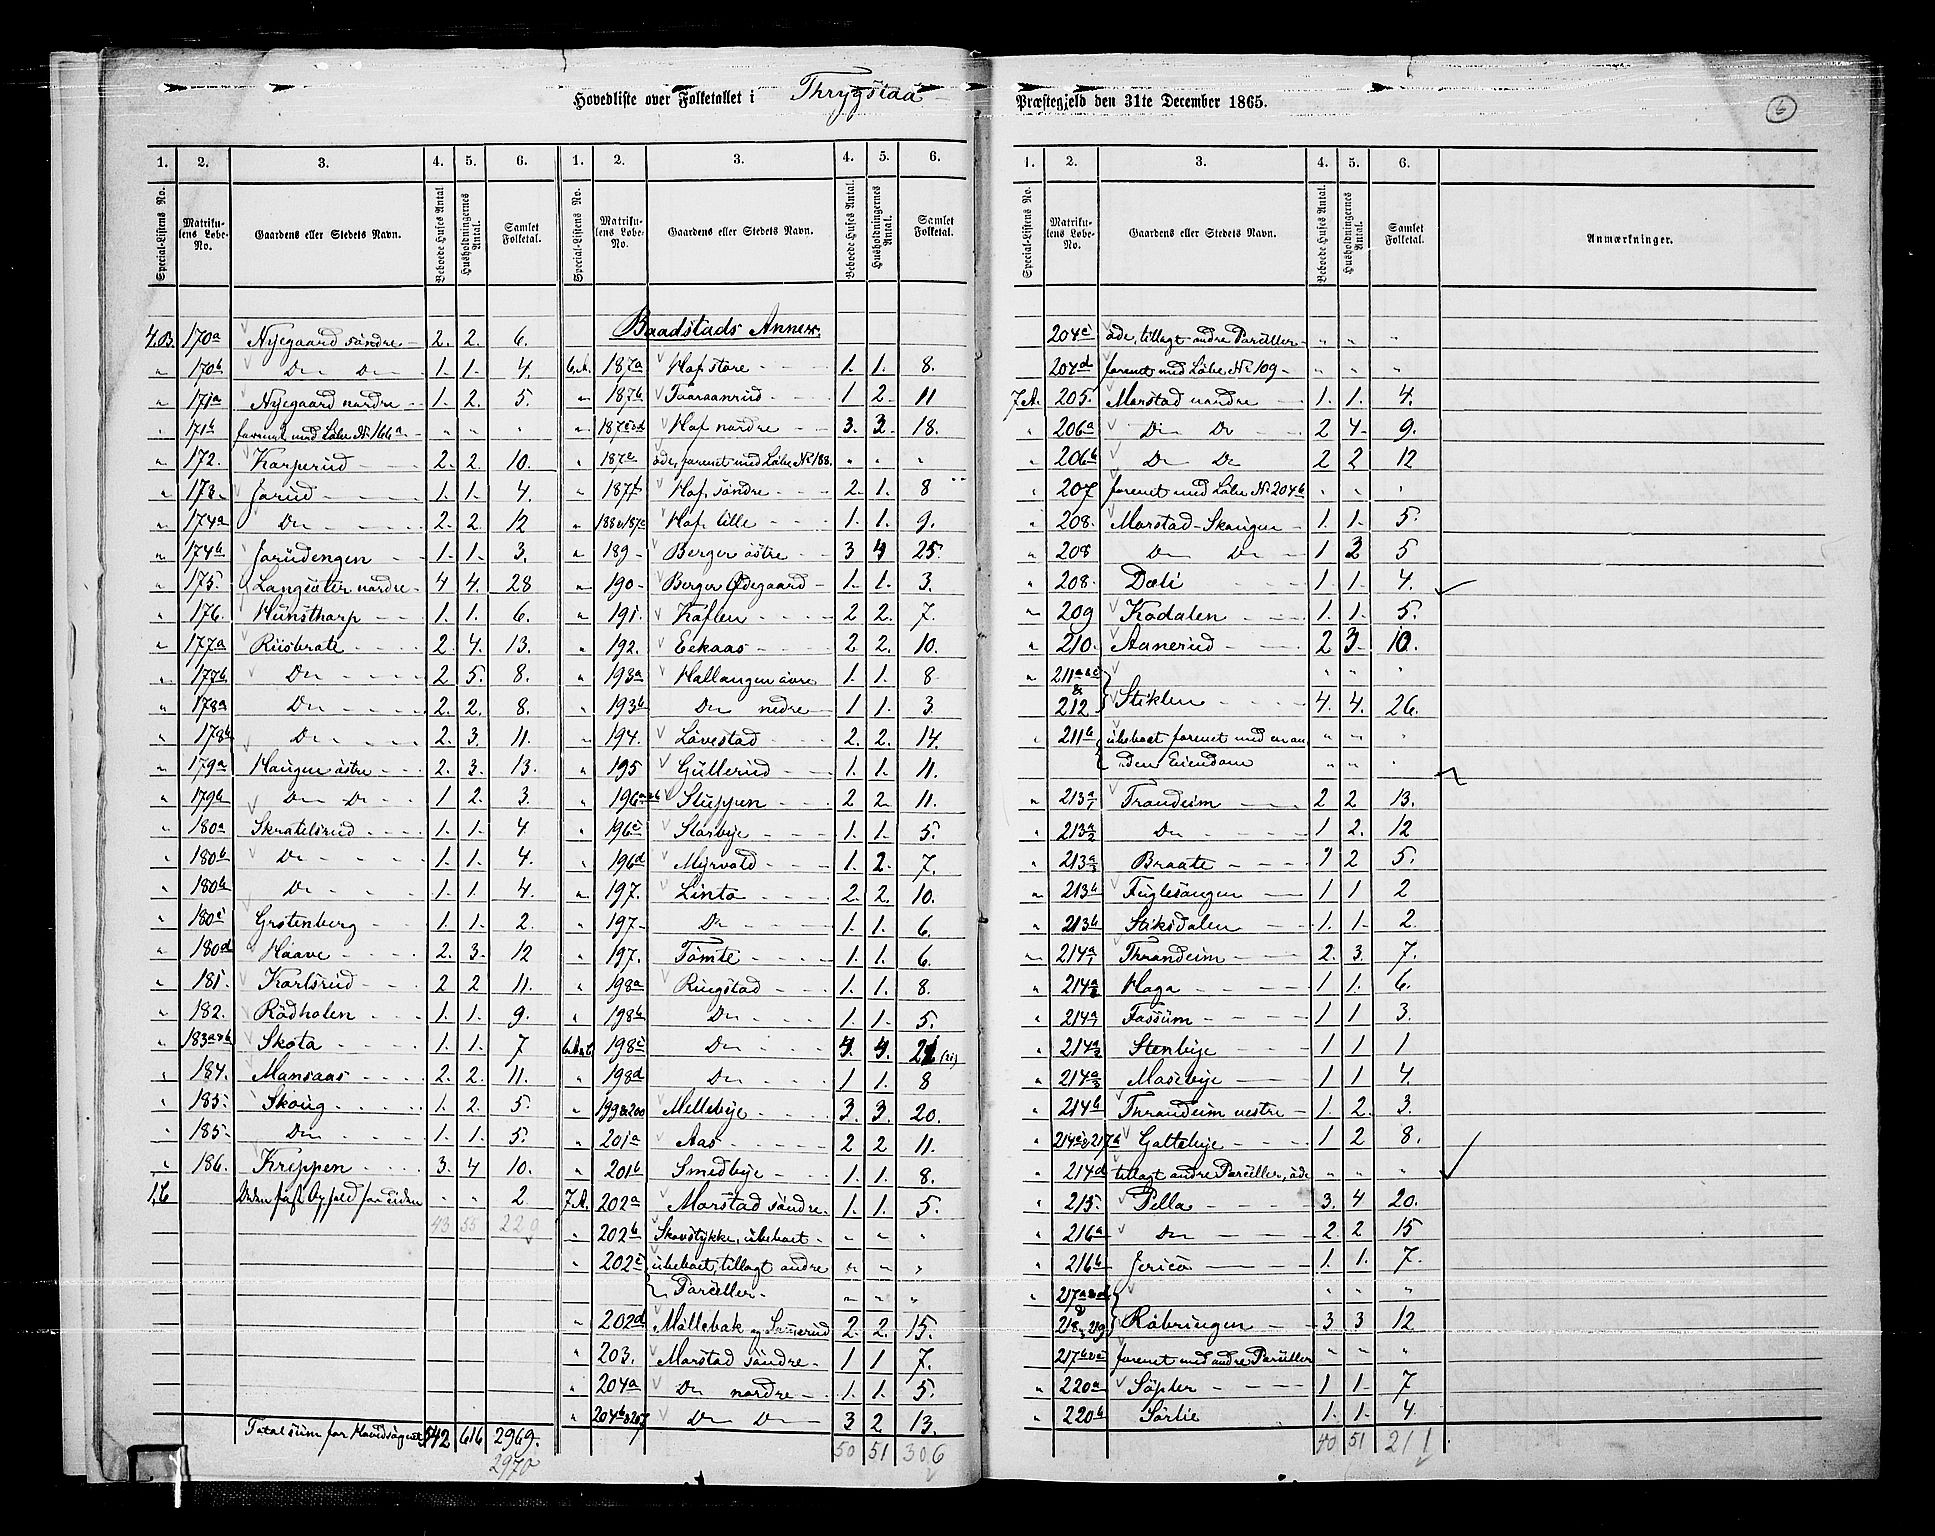 Hovedliste over Folketallet i Thrygstad Præstegjeld den 31te December 1865.
6
1. 2. 3. 4. 5. 6. 1. 2. 3. 4. 5. 6.
Special-Listens No. Matrikulens Løbe-No. Gaardens eller Stedets Navn. Beboede Huses Antal. Husholdningernes Antal. Samlet Folketal. Special-Listens No. Matrikulens Løbe-No. Gaardens eller Stedets Navn. Beboede Huses Antal. Husholdningernes Antal. Samlet Folketal.
4.B. 170a Nyegaard söndre 2. 2. 6.
" 170b Do Do 1. 1. 4.
" 171a Nyegaard nordre 1. 2. 5.
" 171b forenet med Löbe No 166a " " "
" 172. Karperud 2. 2. 10.
" 173. Jorud 1. 1. 4.
" 174a Do 2. 2. 12
" 174b Jorudengen 1. 1. 3.
" 175. Langsæter nordre 4 4. 28
" 176. Hunstharp 1. 1. 6.
" 177a Riisbrate 2. 4. 13.
" 177b Do 2 5. 8.
" 178a Do 2. 2. 8.
" 178b Do 2. 3. 11.
" 179a Haugen östre 2. 3. 13.
" 179b Do Do 1 2. 3.
" 180a Skratelsrud 1. 1. 4
" 180b Do 1. 1. 4.
" 180b Do 1. 1 4.
" 180c Grotenberg 1. 1. 2.
" 180d Haave 2. 3. 12
" 181. Karlsrud 2 2 11.
" 182. Rödholen 1. 1. 9.
" 183a&b Skota 1. 1. 7
" 184. Mansaas 2. 2. 11.
" 185. Skoug 1. 2. 5.
" 185. Do 1. 1. 5.
" 186. Krippen 3. 4 10.
1.C Uden fast Ophold for Tiden " " 2.
43 55 220
Totalsum for Hovedsognet 542 616 2969.
2970
Baadstads Annex.
6.A. 187a Hof store 1. 1. 8.
" 187b Taaraanrud 1 2. 11
" 187c&d Hof nordre 3. 3. 18.
" 187e öde, forenet med Löbe No 188. " " "
" 187f Hof söndre 2. 1. 8
" 188&187c Hof lille 1. 1. 9.
" 189 Berger östre 3 4 25.
" 190 Berger Ødegaard 1. 1. 3.
" 191. Koflen 2 2. 7.
" 192. Eekaas 2 2. 10.
" 193a Hallangen övre 1. 1. 8
" 193b Do nedre 1 1. 3.
" 194. Lövestad 2. 2. 14.
" 195 Gullerud 1. 1. 11.
" 196a&b Stuppen 2 2. 11.
" 196c Storbye 1. 1. 5.
" 196d Myrvold 1. 2. 7.
" 197. Linto 2. 2. 10.
" 197. Do 1. 1. 6.
" 197. Tömte 1. 1. 6.
" 198a Ringstad 1. 1. 8.
" 198b Do 1. 1. 5.
198c Do 4. 4. 21 (21)
" 198d Do 1 1. 8
" 199&200 Mellebye 3. 3. 20.
" 201a Aas 2 2 11.
" 201b Smedbye 1. 1. 8.
7.A. 202a Morstad söndre 1. 1. 5.
" 202b Skovstykke, ubeboet " " "
" 202c ubeboet, tillagt andre
Parceller " " "
" 202d Möllebæk og 2. 2. 15.
" 203. Morstad söndre 1 1 7.
" 204a Do nordre 1. 1. 5
" 204b&207 Do Do 3 2 13.
50 51 306
1. 2. 3. 4. 5. 6.
Special-Listens No. Matrikulens Løbe-No. Gaardens eller Stedets Navn. Beboede Huses Antal. Husholdningernes Antal. Samlet Folketal. Anmærkninger.
204c öde, tillagt andre Parceller " " "
204d forenet med Löbe No 109 " " "
7.A. 205. Morstad nordre 1. 1. 4.
" 206a Do Do 2 4. 9.
" 206b Do Do 2 2 12
" 207 forenet med Löbe No 204b " " "
" 208. Morstad-Skougen 1. 1. 5.
" 208 Do Do 1 2 5
" 208. Dæli 1 1. 4.
" 209 Kodalen 1. 1. 5.
" 210. Aanerud 2 3. 10.
" 211a&c " "
& 212 Stiklen 4. 4. 26.
" 211b ubeboet forenet med en an- " " "
den Eiendom " " "
" 213a/1 Trondeim 2 2 13.
" 213a/2 Do 1 2. 12
" 213a/3 Braate 1 2 5.
" 213b Fuglesangen 1 1 2
" 213b Stiksdalen 1. 1. 2.
" 214a/1 Throndeim 2. 3. 7.
" 214a/2 Haga 1 1. 6.
" 214a Fossum 1 1 3.
" 214a Stenbye 1 1 1
" 214a Mosebye 1 1 4.
" 214b Throndeim vestre 1. 2. 3.
" 214c&217b Galtebye 1 2 8.
" 214d tillagt andre Parceller, öde " " "
" 215. Pella 3. 4 20.
" 216a Do 2. 2 15
" 216b Jerico 1. 1. 7.
217a&d " " "
& 218&219 Röbringen 3 3 12
217b&c forenet med andre Parceller " " "
" 220a Söpler 1 1. 7
" 220b Sörlie 1. 1. 4.
40 51 211